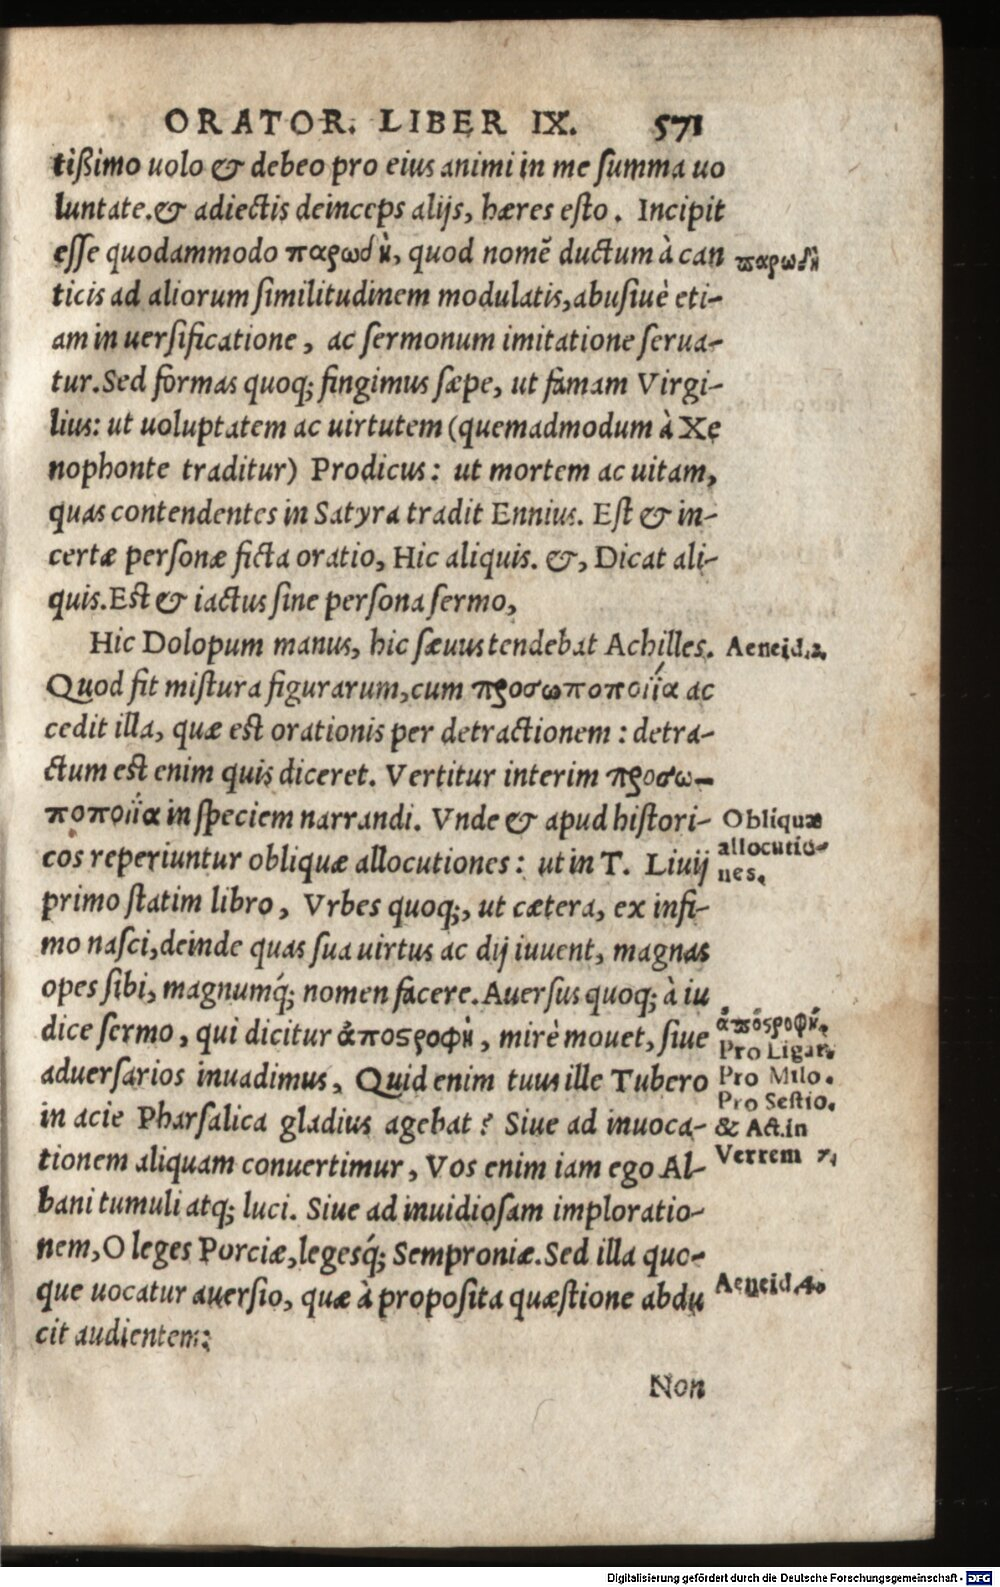 ORATOR. LIBER IX. 571
tißimo uolo & debeo pro eius animi in me summa uo
luntate.& adiectis deinceps alijs, hæres esto. Incipit
esse quodammodo παρωδὴ, quod nomẽ ductum à can
παρωδὴ
ticis ad aliorum similitudinem modulatis, abusiuè eti-
am in uersificatione, ac sermonum imitatione serua-
tur. Sed formas quoq; fingimus sæpe, ut famam Virgi-
lius: ut uoluptatem ac uirtutem (quemadmodum à Xe
nophonte traditur) Prodicus: ut mortem ac uitam,
quas contendentes in Satyra tradit Ennius. Est & in-
certæ personæ ficta oratio, Hic aliquis. &, Dicat ali-
quis. Est & iactus sine persona sermo,
Hic Dolopum manus, hic sæuus tendebat Achilles.
Aeneid.2.
Quod fit mistura figurarum, cum προσωποποιΐα ac
cedit illa, quæ est orationis per detractionem: detra-
ctum est enim quis diceret. Vertitur interim προσω-
ποποιΐα in speciem narrandi. Vnde & apud histori-
cos reperiuntur obliquæ allocutiones: ut in T. Liuij
Obliquæ
allocutio-
nes.
primo statim libro, Vrbes quoq;, ut cætera, ex infi-
mo nasci, deinde quas sua uirtus ac dij iuuent, magnas
opes sibi, magnumq́; nomen facere. Auersus quoq; à iu
dice sermo, qui dicitur ἀποστροφὴ, mirè mouet, siue
aduersarios inuadimus, Quid enim tuus ille Tubero
in acie Pharsalica gladius agebat? Siue ad inuoca-
tionem aliquam conuertimur, Vos enim iam ego Al-
ἀπόστροφή.
Pro Ligar.
Pro Milo.
Pro Sestio.
& Act.in
Verrem 7.
bani tumuli atq; luci. Siue ad inuidiosam imploratio-
nem, O leges Porciæ, legesq́; Semproniæ. Sed illa quo-
que uocatur auersio, quæ à proposita quæstione abdu
Aeneid.4.
cit audientem:
Non
Digitalisierung gefördert durch die Deutsche Forschungsgemeinschaft - DFG